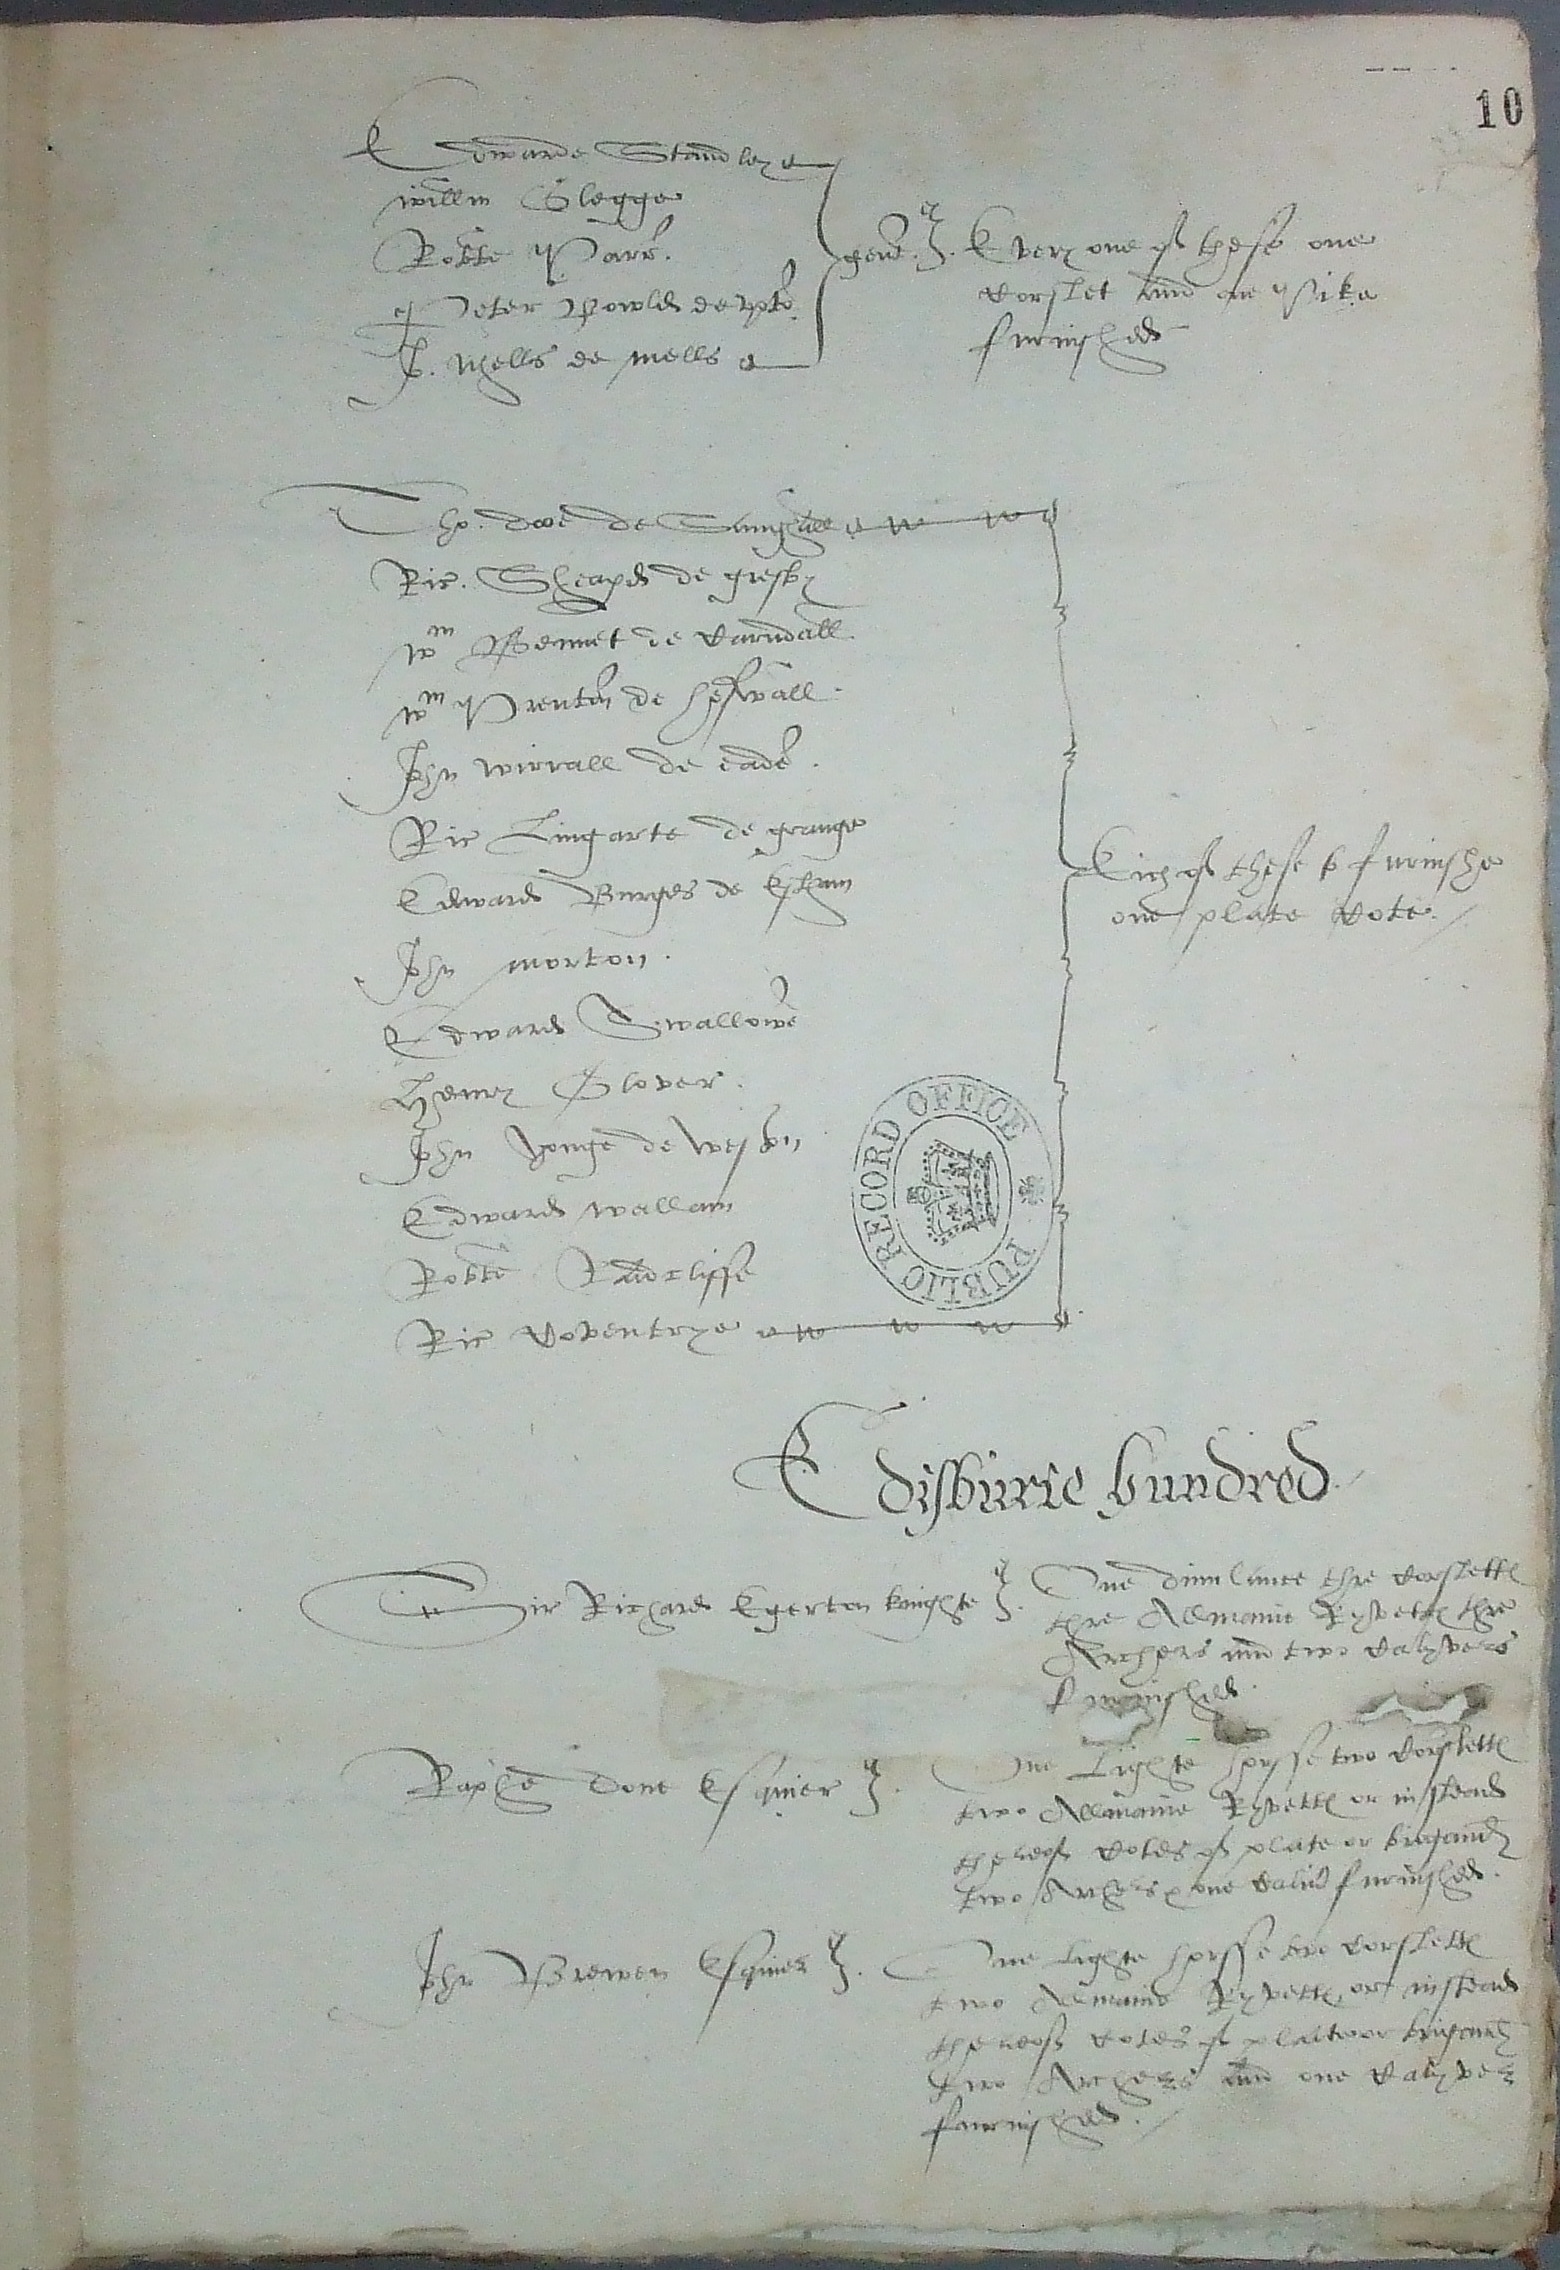 10
Edwarde Standley
Willm Glegge
Robte Parr.
Peter Bowld de Upto
J. Mells de mells
gene. Every one of these one
Corslet and one Pike
furnished
Tho. doe de Saughall
Ric. Sheapd de gresby
Wm Bennet de Barndall
Wm Prenton de heswall.
John Wirrall de eade.
Ric Lingarte de grange
Edward Burges de
John Morton.
Edward Swallowe
Henry Glover.
John Yonge de
Edward Wallam
Robte Radcliffe
Ric Coventrye
Eich of these to furnishe
one plate Cote.
PUBLIC RECORD OFFICE
Edisburie hundred
Sir Richard Egerton knighte
One dimi lance thre Corslette
thre Allmaine Ryvette thre
Archers and two Calyvers
furnished.
Raphe Done Esquier
One Lighte horsse two Corslette
two Allmaine Ryvette or in steade
thereof Cotes of plate or brigand
two Archers one Caliv furnished.
John Brewen Esquier
One lighte horsse two Corslette
two Almaine Ryvette or in steade
thereof Cotes of plaite or brigand
two Archers and one Calyver
furnished.